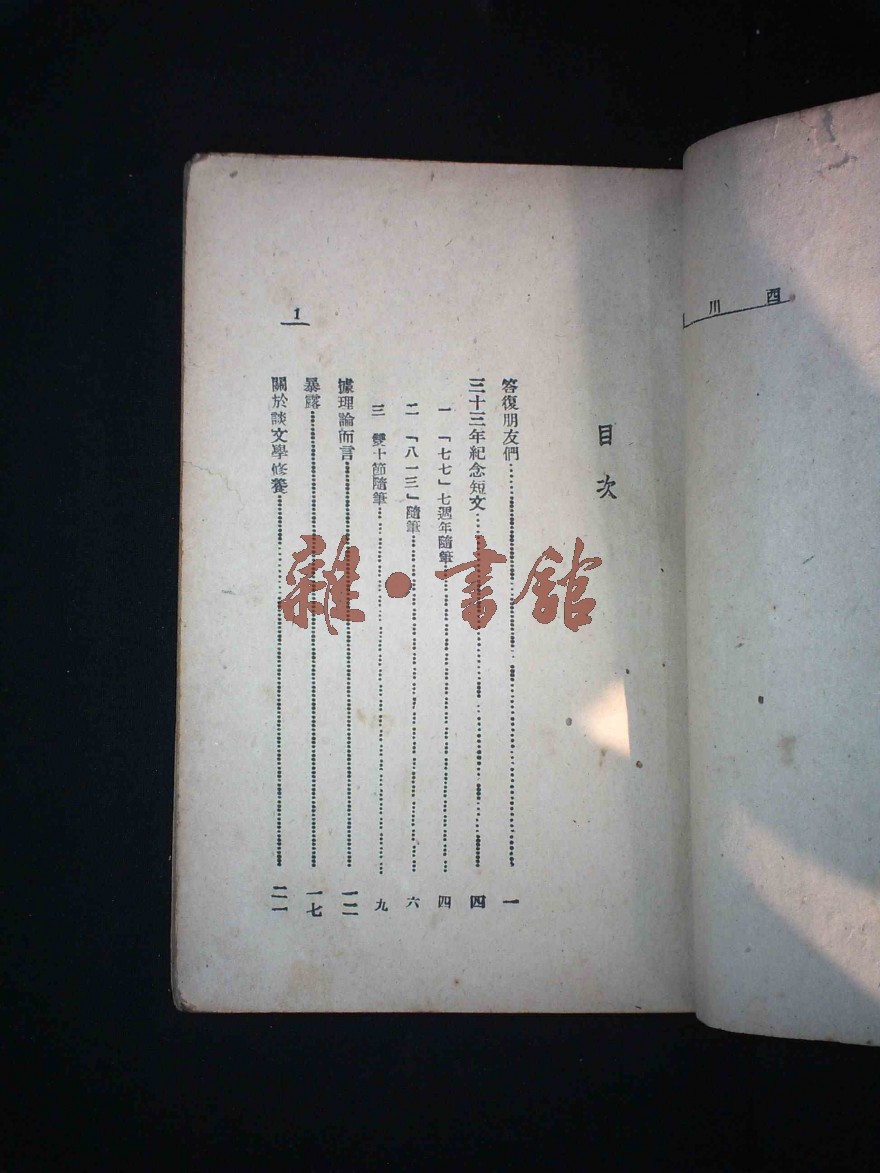 酉川
目次
答復朋友們……一
三十三年紀念短文……四
一 「七七」七週年隨筆……四
二 「八一三」隨筆……六
三 雙十節隨筆……九
據理論而言……一二
暴露……一七
關於談文學修養……二一
1
雜·書館